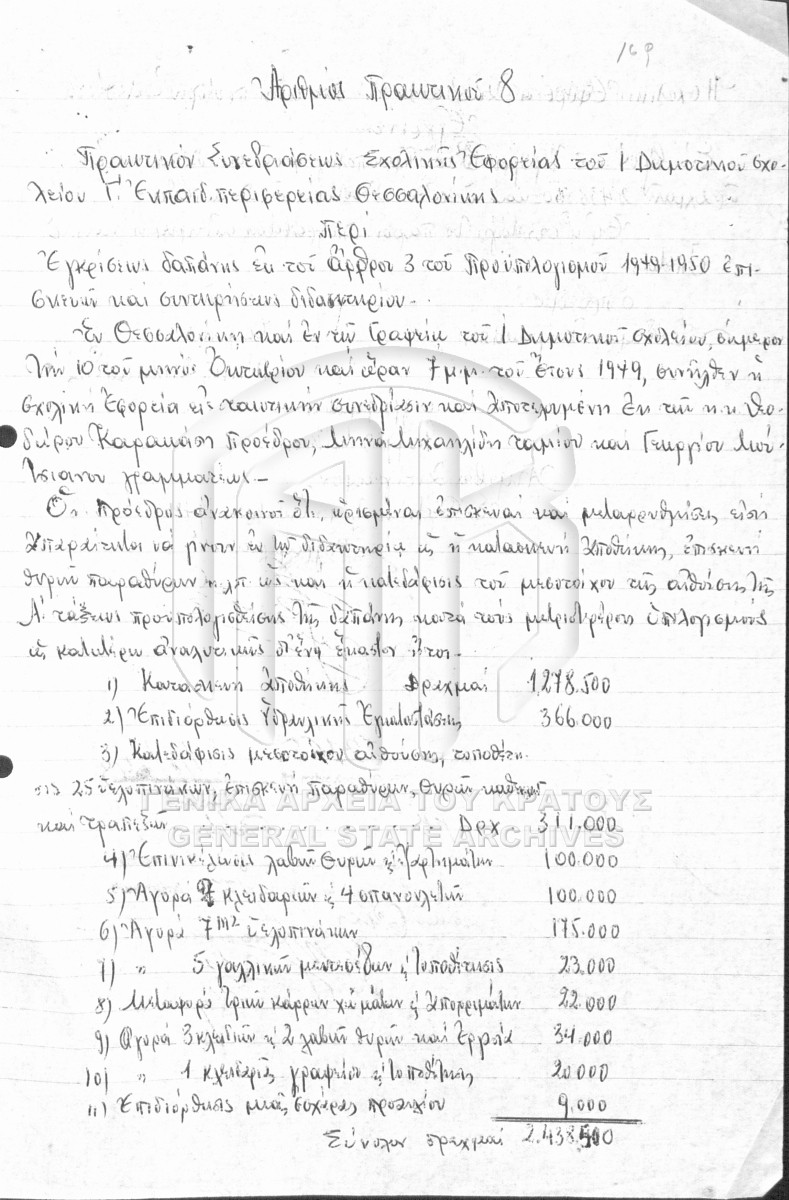 169
Ἀριθμός Πρακτικοῦ 8
Πρακτικόν Συνεδριάσεως Σχολικῆς Ἐφορείας τοῦ 1 Δημοτικοῦ σχο-
λείου Γ΄ Ἐκπαιδ. περιφερείας Θεσσαλονίκης
περί
Ἐγκρίσεως δαπάνης ἐκ τοῦ ἄρθρου 3 τοῦ προϋπολογισμοῦ 1949-1950 ἐπι-
σκευῶν καί συντηρήσεως διδακτηρίου.
Ἐν Θεσσαλονίκῃ καί ἐν τῷ Γραφείῳ τοῦ 1 Δημοτικοῦ σχολείου, σήμερον
τήν 10 τοῦ μηνός Ὀκτωβρίου καί ὥραν 7 μ.μ. τοῦ ἔτους 1949, συνῆλθεν ἡ
σχολική Ἐφορεία εἰς τακτικήν συνεδρίασιν καί ἀποτελουμένη ἐκ τῶν κ.κ. Θεο-
δώρου Καρακάση προέδρου, Μηνᾶ Μιχαηλίδη ταμίου καί Γεωργίου Μου-
τσιάνου γραμματέως.—
Ὁ κ. Πρόεδρος ἀνακοινοῖ ὅτι, ὡρισμέναι ἐπισκευαί καί μεταρρυθμίσεις εἶναι
ἀπαραίτητοι νά γίνουν ἐν τῷ διδακτηρίῳ ὡς ἡ κατασκευή ἀποθήκης, ἐπισκευή
θυρῶν παραθύρων κ.λ.π. ὡς καί ἡ κατεδάφισις τοῦ μεσοτοίχου τῆς αἰθούσης τῆς
Α΄ τάξεως προϋπολογισθείσης τῆς δαπάνης κατά τούς μετριωτέρους ὑπολογισμούς
ὡς κατωτέρω ἀναλυτικῶς δι' ἕνα ἕκαστον ἤτοι.
1) Κατασκευή ἀποθήκης Δραχμαί 1.278.500
2) Ἐπιδιόρθωσις ὑδραυλικῆς ἐγκαταστάσεως 366.000
3) Κατεδάφισις μεσοτοίχου αἰθούσης, τοποθέτη-
σις 25 ὑελοπινάκων, ἐπισκευή παραθύρων, θυρῶν καθεκλῶν
καί τραπεζῶν . . . . . . . . Δρχ 311.000
4) Ἐπινικέλωσις λαβῶν θυρῶν & ἐξαρτημάτων 100.000
5) Ἀγορά 9 κλειδαριῶν & 4 σπανιολετῶν 100.000
6) Ἀγορά 7 m2 ὑελοπινάκων 175.000
7) „ 5 γαλλικῶν μεντεσέδων & τοποθέτησις 23.000
8) Μεταφορά τριῶν κάρρων χωμάτων & ἀπορριμάτων 22.000
9) Ἀγορά 3 κλειδιῶν & 2 λαβῶν θυρῶν καί ἐργασία 34.000
10) „ 1 κλειδαριᾶς γραφείου & τοποθέτησις 20.000
11) Ἐπιδιόρθωσις μιᾶς ἐσχάρας προαυλίου 9.000
Σύνολον δραχμαί 2.438.500
ΓΕΝΙΚΑ ΑΡΧΕΙΑ ΤΟΥ ΚΡΑΤΟΥΣ
GENERAL STATE ARCHIVES